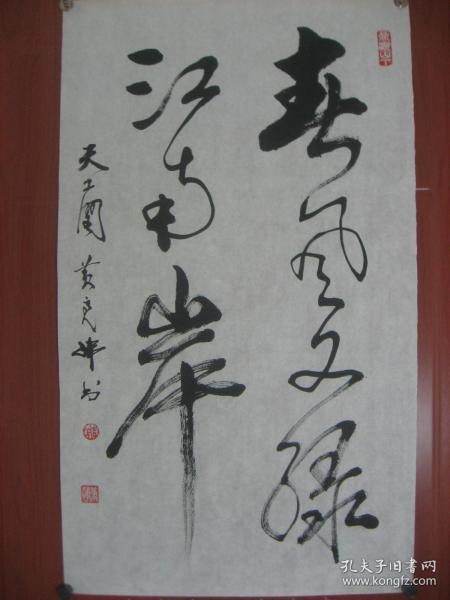 春风又绿
江南岸
天工阁 黄亮 书
孔夫子旧书网
www.kongfz.com